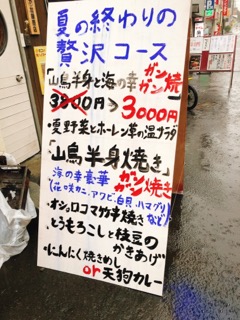 夏の終わりの
贅沢コース
山鳥半身と海の幸ガンガン焼
3800円>3000円
・夏野菜とホーレン草の温サラダ
「山鳥半身焼き」
海の幸豪華ガンガン焼き
(花咲カニ、アワビ、白貝、ハマグリなど)
・オショロコマガキ焼き
・とうもろこしと枝豆の
かきあげ
・にんにく焼きめし
or天狗カレー